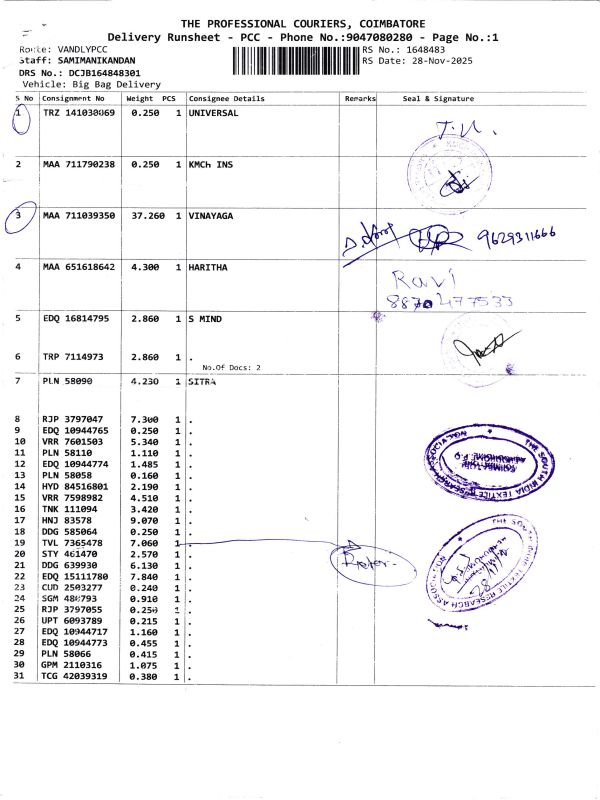 THE PROFESSIONAL COURIERS, COIMBATORE
Delivery Runsheet - PCC - Phone No.:9047080280 - Page No.:1
Route: VANDLYPCC RS No.: 1648483
Staff: SAMIMANIKANDAN RS Date: 28-Nov-2025
DRS No.: DCJB164848301
Vehicle: Big Bag Delivery
S No Consignment No Weight PCS Consignee Details Remarks Seal & Signature
1 TRZ 141030069 0.250 1 UNIVERSAL
2 MAA 711790238 0.250 1 KMCh INS
3 MAA 711039350 37.260 1 VINAYAGA 9629311666
4 MAA 651618642 4.300 1 HARITHA Ravi
8870477533
5 EDQ 16814795 2.860 1 S MIND
6 TRP 7114973 2.860 1 .
No.Of Docs: 2
7 PLN 58090 4.230 1 SITRA
8 RJP 3797047 7.300 1 .
9 EDQ 10944765 0.250 1 .
10 VRR 7601503 5.340 1 .
11 PLN 58110 1.110 1 .
12 EDQ 10944774 1.485 1 .
13 PLN 58058 0.160 1 .
14 HYD 84516801 2.190 1 .
15 VRR 7598982 4.510 1 .
16 TNK 111094 3.420 1 .
17 HNJ 83578 9.070 1 .
18 DDG 585064 0.250 1 .
19 TVL 7365478 7.060 1 .
20 STY 461470 2.570 1 .
21 DDG 639930 6.130 1 .
22 EDQ 15111780 7.840 1 .
23 CUD 2503277 0.240 1 .
24 SGM 486793 0.910 1 .
25 RJP 3797055 0.250 1 .
26 UPT 6093789 0.215 1 .
27 EDQ 10944717 1.160 1 .
28 EDQ 10944773 0.455 1 .
29 PLN 58066 0.415 1 .
30 GPM 2110316 1.075 1 .
31 TCG 42039319 0.380 1 .
THE SOUTH INDIA TEXTILE RESEARCH ASSOCIATION
THE SOUTH INDIA TEXTILE RESEARCH ASSOCIATION